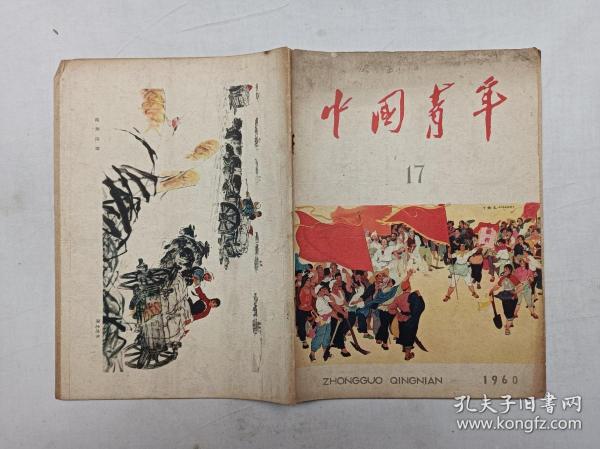 中国青年
17
ZHONGGUO QINGNIAN
1960
孔夫子旧书网
www.kongfz.com